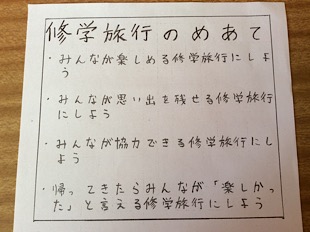 修学旅行のめあて
・みんなが楽しめる修学旅行にしよ
う
・みんなが思い出を残せる修学旅行
にしよう
・みんなが協力できる修学旅行にし
よう
・帰ってきたらみんなが「楽しかっ
た」と言える修学旅行にしよう